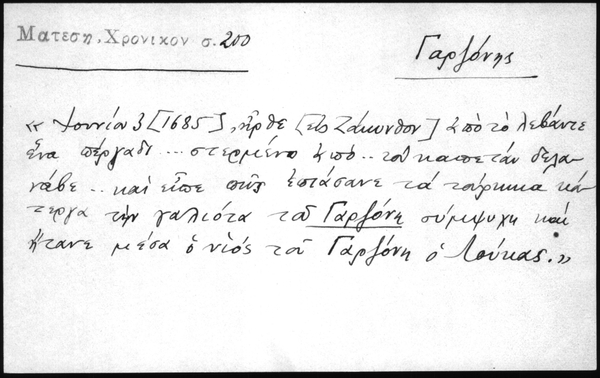 Ματεση, Χρονικον σ. 200
Γαρζόνης
« Ἰουνίου 3 [1685], ἦρθε [εἰς Ζάκυνθον] ἀπὸ τὸ λεβάντε
ἕνα πέργαδι ... στερμένο ἀπὸ .. τοῦ καπετάν δελα
νάβε .. καὶ εἶπε πῶς ἐπιάσανε τὰ τούρκικα κά
τεργα τὴν γαλιότα τοῦ Γαρζόνη σύμψυχη καὶ
ἤτανε μέσα ὁ υἱός τοῦ Γαρζόνη ὁ Λούκας. »